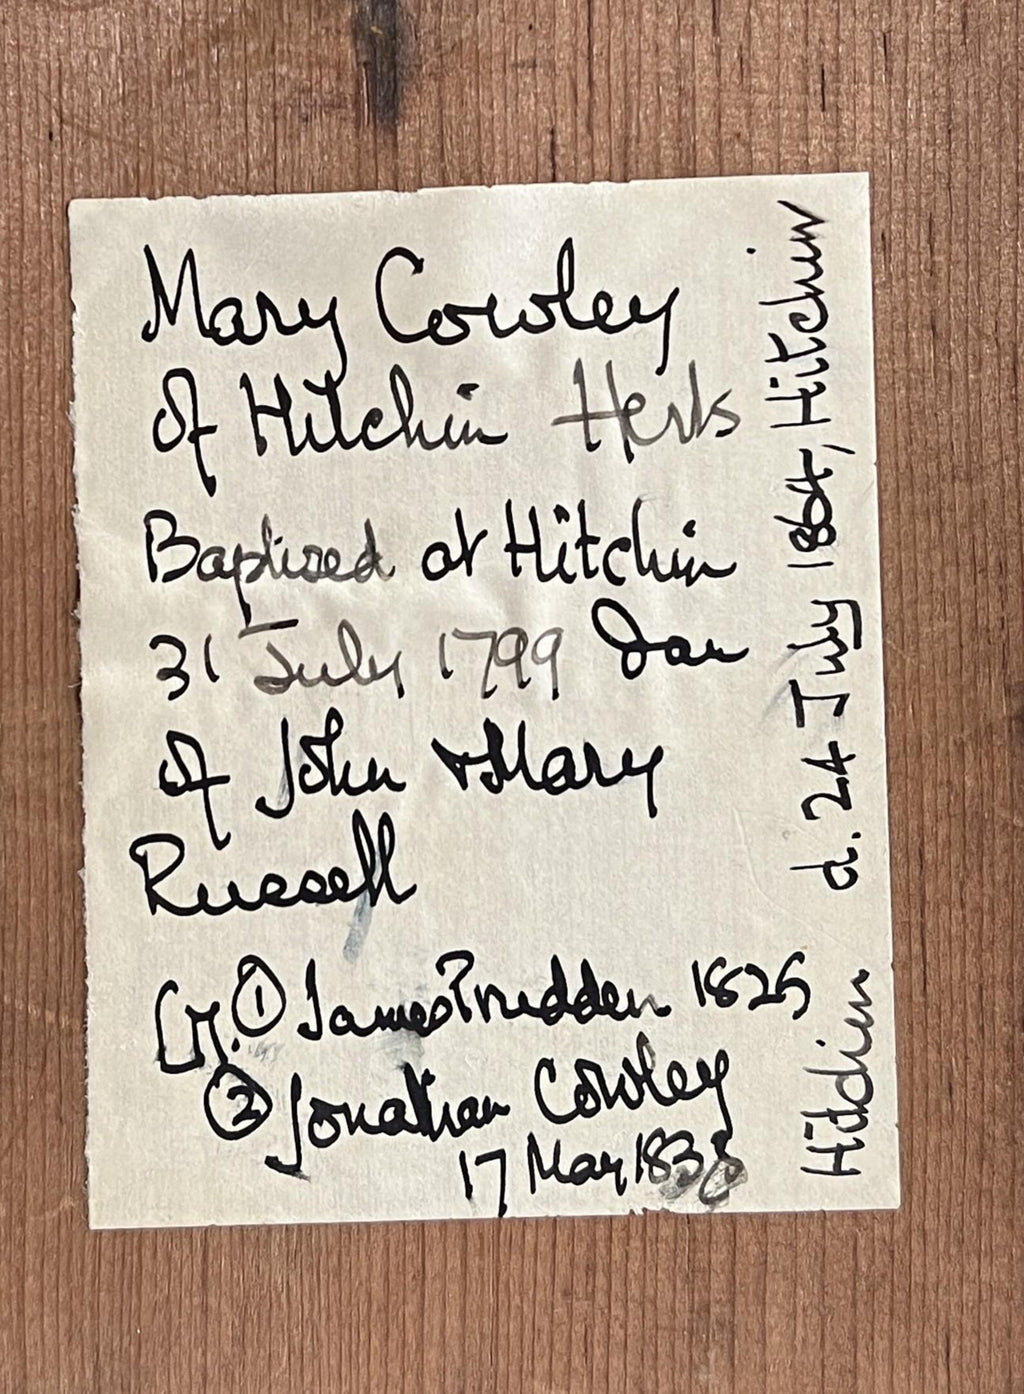 Mary Cowley
of Hitchin Herts
Baptised at Hitchin
31 July 1799 Dau
of John & Mary
Russell
M. ① James Prudden 1825
② Jonathan Cowley
17 May 1835
Hitchin d. 24 July 1864, Hitchin